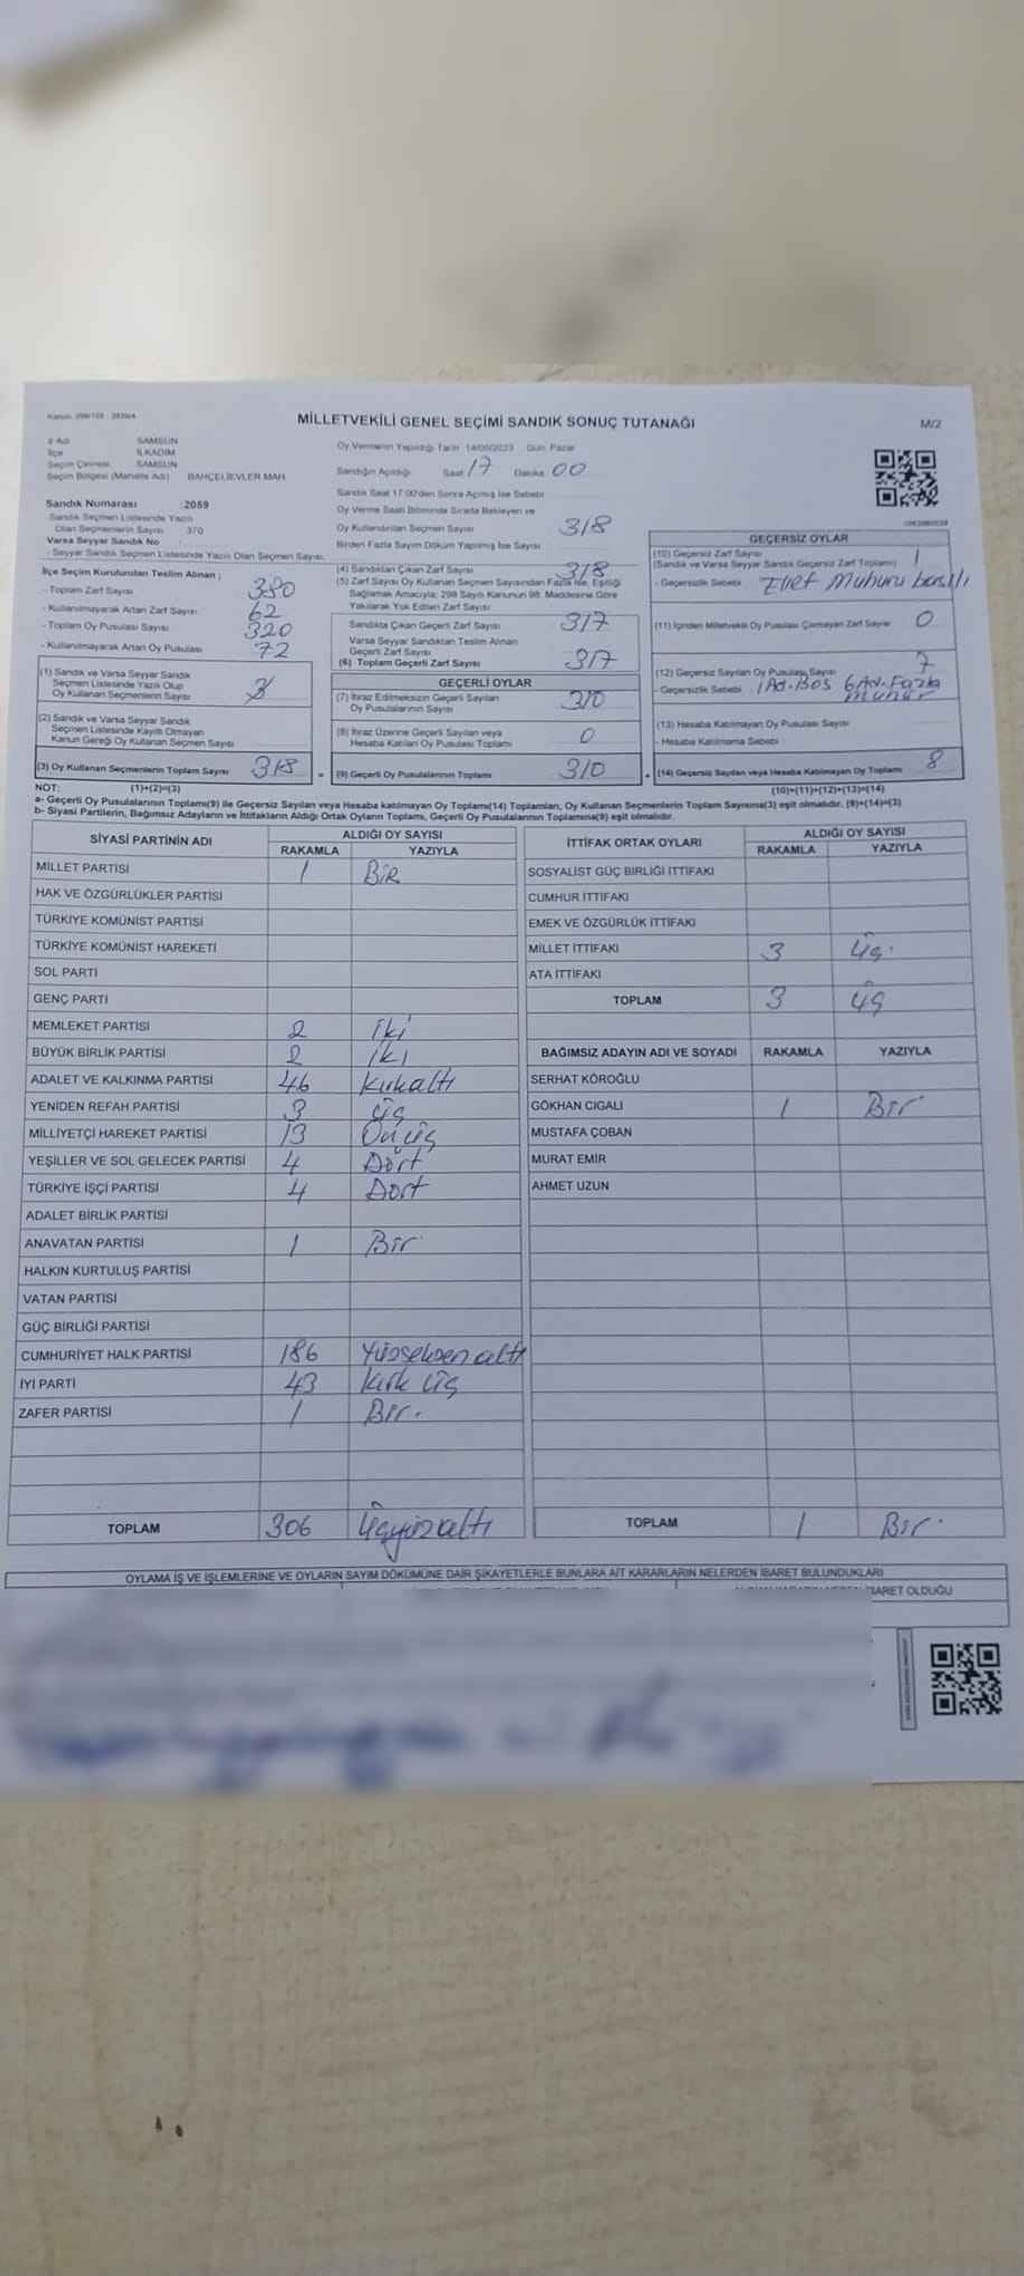 MİLLETVEKİLİ GENEL SEÇİMİ SANDIK SONUÇ TUTANAĞI
M/2
İl Adı SAMSUN
İlçe İLKADIM
Seçim Çevresi SAMSUN
Seçim Bölgesi (Mahalle Adı) BAHÇELİEVLER MAH
Oy Vermenin Yapıldığı Tarih 14/05/2023 Gün Pazar
Sandığın Açıldığı Saat 17 Dakika 00
Sandık Saat 17:00'den Sonra Açılmış İse Sebebi
Oy Verme Saati Bitiminde Sırada Bekleyen ve
Oy Kullandırılan Seçmen Sayısı 318
Birden Fazla Sayım Döküm Yapılmış İse Sayısı
Sandık Numarası :2059
Sandık Seçmen Listesinde Yazılı
Olan Seçmenlerin Sayısı 370
Varsa Seyyar Sandık No
Seyyar Sandık Seçmen Listesinde Yazılı Olan Seçmen Sayısı:
İlçe Seçim Kurulundan Teslim Alınan ;
- Toplam Zarf Sayısı 380
- Kullanılmayarak Artan Zarf Sayısı 62
- Toplam Oy Pusulası Sayısı 320
- Kullanılmayarak Artan Oy Pusulası 72
(1) Sandık ve Varsa Seyyar Sandık
Seçmen Listesinde Yazılı Olup
Oy Kullanan Seçmenlerin Sayısı
(2) Sandık ve Varsa Seyyar Sandık
Seçmen Listesinde Kayıtlı Olmayan
Kanun Gereği Oy Kullanan Seçmen Sayısı
(3) Oy Kullanan Seçmenlerin Toplam Sayısı 318
(4) Sandıktan Çıkan Zarf Sayısı 318
(5) Zarf Sayısı Oy Kullanan Seçmen Sayısından Fazla İse, Eşitliği
Sağlamak Amacıyla; 298 Sayılı Kanunun 98. Maddesine Göre
Yakılarak Yok Edilen Zarf Sayısı
Sandıkta Çıkan Geçerli Zarf Sayısı 317
Varsa Seyyar Sandıktan Teslim Alınan
Geçerli Zarf Sayısı
(6) Toplam Geçerli Zarf Sayısı 317
GEÇERLİ OYLAR
(7) İtiraz Edilmeksizin Geçerli Sayılan
Oy Pusulalarının Sayısı 310
(8) İtiraz Üzerine Geçerli Sayılan veya
Hesaba Katılan Oy Pusulası Toplamı 0
(9) Geçerli Oy Pusulalarının Toplamı 310
GEÇERSİZ OYLAR
(10) Geçersiz Zarf Sayısı
(Sandık ve Varsa Seyyar Sandık Geçersiz Zarf Toplamı) 1
- Geçersizlik Sebebi Evet Mührü basılı
(11) İçinden Milletvekili Oy Pusulası Çıkmayan Zarf Sayısı 0
(12) Geçersiz Sayılan Oy Pusulası Sayısı 7
- Geçersizlik Sebebi 1 Ad. Boş 6 Ad. Fazla
Mühür
(13) Hesaba Katılmayan Oy Pusulası Sayısı
- Hesaba Katılmama Sebebi
(14) Geçersiz Sayılan veya Hesaba Katılmayan Oy Toplamı 8
NOT: (1)+(2)=(3) (10)+(11)+(12)+(13)=(14)
a- Geçerli Oy Pusulalarının Toplamı(9) ile Geçersiz Sayılan veya Hesaba katılmayan Oy Toplamı(14) Toplamları, Oy Kullanan Seçmenlerin Toplam Sayısına(3) eşit olmalıdır. (9)+(14)=(3)
b- Siyasi Partilerin, Bağımsız Adayların ve İttifakların Aldığı Ortak Oyların Toplamı, Geçerli Oy Pusulalarının Toplamına(9) eşit olmalıdır.
SİYASİ PARTİNİN ADI ALDIĞI OY SAYISI
RAKAMLA YAZIYLA
MİLLET PARTİSİ 1 Bir
HAK VE ÖZGÜRLÜKLER PARTİSİ
TÜRKİYE KOMÜNİST PARTİSİ
TÜRKİYE KOMÜNİST HAREKETİ
SOL PARTİ
GENÇ PARTİ
MEMLEKET PARTİSİ 2 iki
BÜYÜK BİRLİK PARTİSİ 2 iki
ADALET VE KALKINMA PARTİSİ 46 kırkaltı
YENİDEN REFAH PARTİSİ 3 üç
MİLLİYETÇİ HAREKET PARTİSİ 13 Onüç
YEŞİLLER VE SOL GELECEK PARTİSİ 4 Dört
TÜRKİYE İŞÇİ PARTİSİ 4 Dört
ADALET BİRLİK PARTİSİ
ANAVATAN PARTİSİ 1 Bir
HALKIN KURTULUŞ PARTİSİ
VATAN PARTİSİ
GÜÇ BİRLİĞİ PARTİSİ
CUMHURİYET HALK PARTİSİ 186 Yüzseksenaltı
İYİ PARTİ 43 kırk üç
ZAFER PARTİSİ 1 Bir.
TOPLAM 306 üçyüzaltı
İTTİFAK ORTAK OYLARI ALDIĞI OY SAYISI
RAKAMLA YAZIYLA
SOSYALİST GÜÇ BİRLİĞİ İTTİFAKI
CUMHUR İTTİFAKI
EMEK VE ÖZGÜRLÜK İTTİFAKI
MİLLET İTTİFAKI 3 üç.
ATA İTTİFAKI
TOPLAM 3 üç
BAĞIMSIZ ADAYIN ADI VE SOYADI RAKAMLA YAZIYLA
SERHAT KÖROĞLU
GÖKHAN CIGALI 1 Bir
MUSTAFA ÇOBAN
MURAT EMİR
AHMET UZUN
TOPLAM 1 Bir.
OYLAMA İŞ VE İŞLEMLERİNE VE OYLARIN SAYIM DÖKÜMÜNE DAİR ŞİKAYETLERLE BUNLARA AİT KARARLARIN NELERDEN İBARET BULUNDUKLARI
OLDUĞU